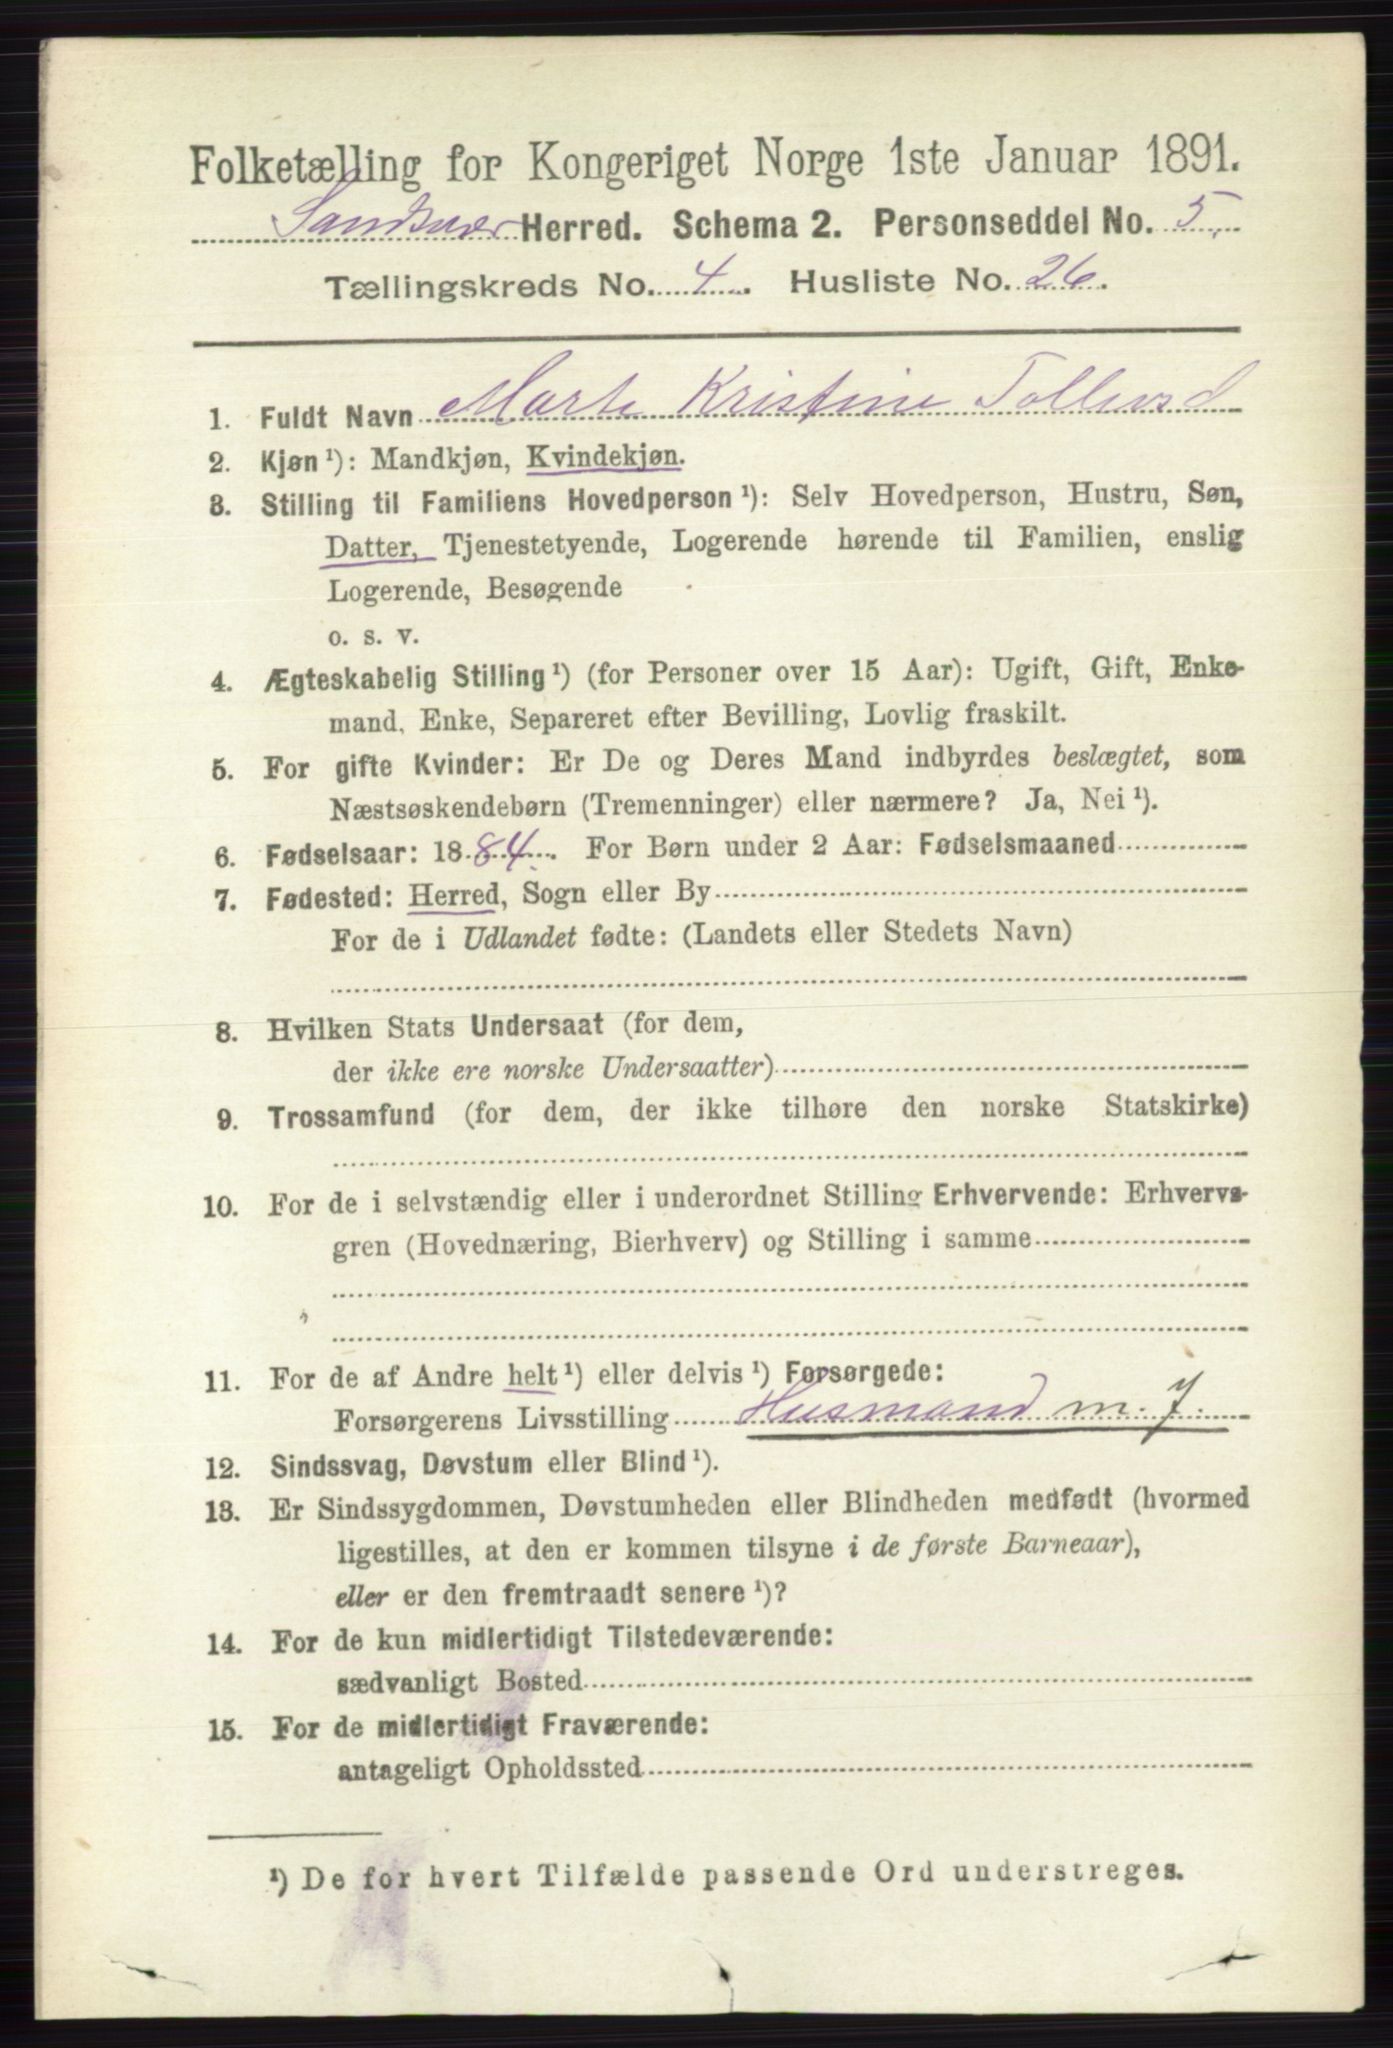 Folketælling for Kongeriget Norge 1ste Januar 1891.
Sandsvær Herred. Schema 2. Personseddel No. 5.
Tællingskreds No. 4. Husliste No. 26.
1. Fuldt Navn Marte Kristine Tollevsd
2. Kjøn ¹): Mandkjøn, Kvindekjøn.
3. Stilling til Familiens Hovedperson ¹): Selv Hovedperson, Hustru, Søn,
Datter, Tjenestetyende, Logerende hørende til Familien, enslig
Logerende, Besøgende
o. s. v.
4. Ægteskabelig Stilling ¹) (for Personer over 15 Aar): Ugift, Gift, Enke-
mand, Enke, Separeret efter Bevilling, Lovlig fraskilt.
5. For gifte Kvinder: Er De og Deres Mand indbyrdes beslægtet, som
Næstsøskendebørn (Tremenninger) eller nærmere? Ja, Nei ¹).
6. Fødselsaar: 1884. For Børn under 2 Aar: Fødselsmaaned
7. Fødested: Herred, Sogn eller By
For de i Udlandet fødte: (Landets eller Stedets Navn)
8. Hvilken Stats Undersaat (for dem,
der ikke ere norske Undersaatter)
9. Trossamfund (for dem, der ikke tilhøre den norske Statskirke)
10. For de i selvstændig eller i underordnet Stilling Erhvervende: Erhvervs-
gren (Hovednæring, Bierhverv) og Stilling i samme
11. For de af Andre helt ¹) eller delvis ¹) Forsørgede:
Forsørgerens Livsstilling Husmand m. J.
12. Sindssvag, Døvstum eller Blind ¹).
13. Er Sindssygdommen, Døvstumheden eller Blindheden medfødt (hvormed
ligestilles, at den er kommen tilsyne i de første Barneaar),
eller er den fremtraadt senere ¹)?
14. For de kun midlertidigt Tilstedeværende:
sædvanligt Bosted
15. For de midlertidigt Fraværende:
antageligt Opholdssted
¹) De for hvert Tilfælde passende Ord understreges.